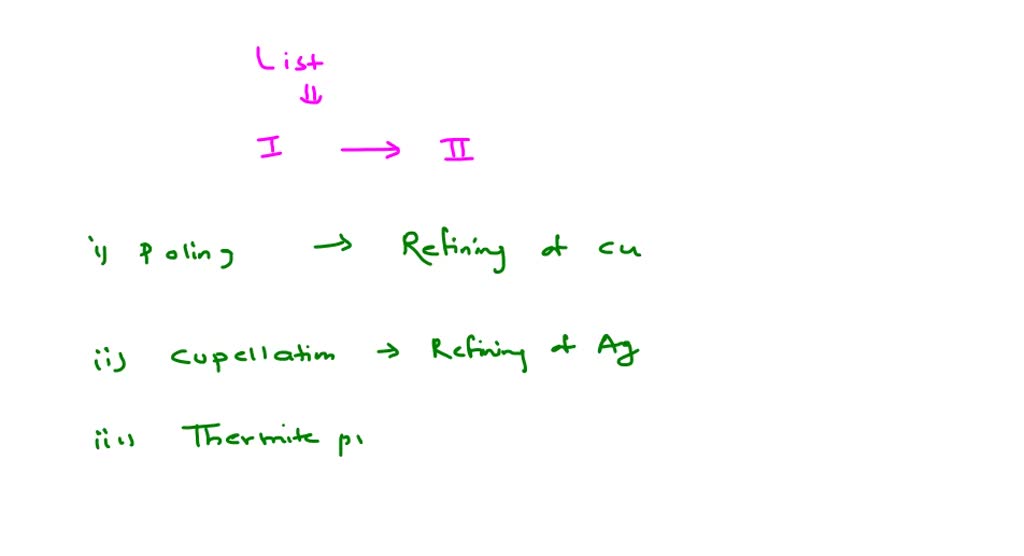 List
⇓
I → II
i) Poling → Refining of Cu
ii) Cupellation → Refining of Ag
iii) Thermite